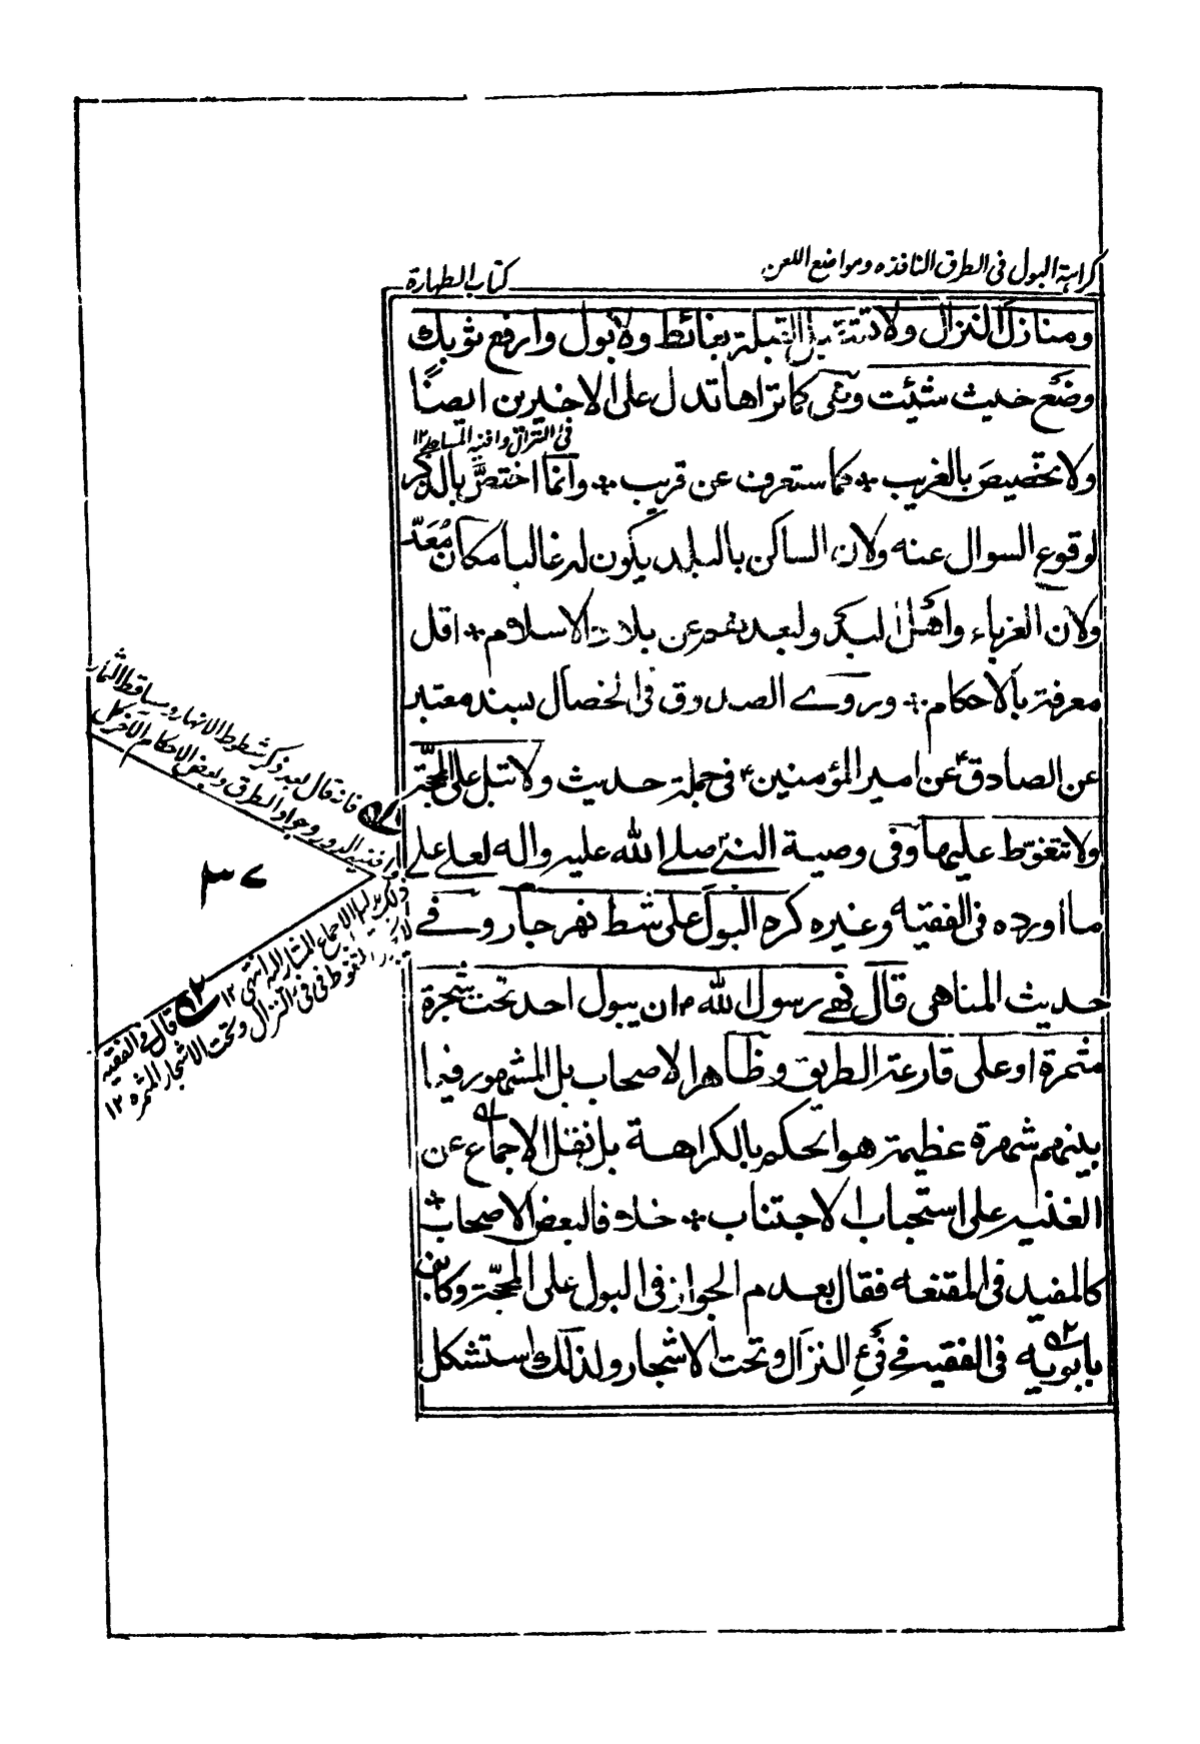 كراهة البول فى الطرق النافذه ومواضع اللعن
كتاب الطهارة
ومنازل النزال ولا تستقبل القبلة بغائط ولا بول وارفع ثوبك
وضع حيث شئت وهى كما تراها تدل على الاخيرين ايضًا
فى النزال وافنية المساجد ١٢
ولا تخصيص بالغريب كما ستعرف عن قريب وانما اختص بالذكر
لوقوع السوال عنه ولان الساكن بالبلد يكون له غالبا مكان مُعَدّ
ولان الغرباء واهل البدو لبعدهم عن بلاد الاسلام اقل
معرفة بالاحكام وروے الصدوق فى الخصال بسند معتبر
عن الصادق ع عن امير المؤمنين ع فى جملة حديث ولا تبل على المحجّة
ولا تتغوّط عليها وفى وصية النبى ص صلے الله عليه واله لعلے على
ما اورده فى الفقيه وغيره كره البول على شط نهر جار وفے
حديث المناهى قال نهے رسول الله ص ان يبول احد تحت شجرة
مثمرة او على قارعة الطريق وظاهر الاصحاب بل المشهور فيما
بينهم شهرة عظيمة هو الحكم بالكراهة بل نقل الاجماع عن
الغنية على استحباب الاجتناب خلافا لبعض الاصحاب
كالمفيد فى المقنعه فقال بعدم الجواز فى البول على المحجّة وكابن
بابويه فى الفقيه فے فئ النزال وتحت الاشجار ولذلك استشكل
فانه قال بعد ذكر شطوط الانهار ومساقط الثمار
وافنية الدور وجواد الطرق وبعض الاحكام الاخر كل
ذلك بدليل الاجماع المشار اليه انتهى ١٢
٣٧
قال فى الفقيه
لا يجوز التغوط فى فئ النزال وتحت الاشجار المثمره ١٢